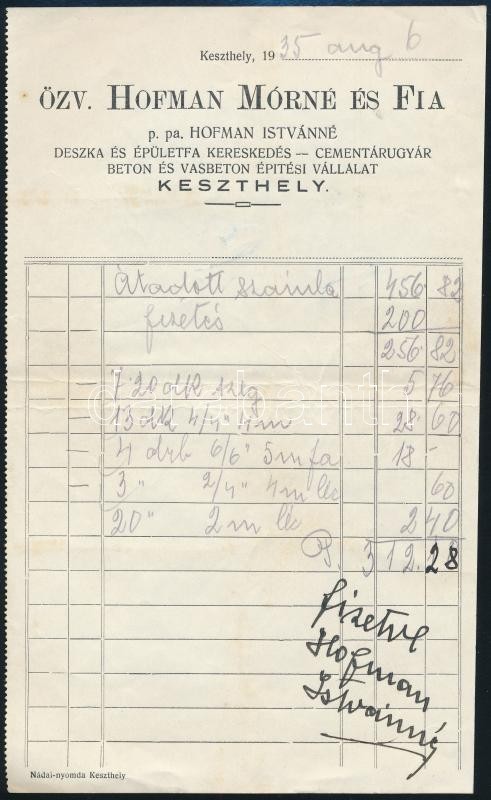 Keszthely, 1935 aug 6
ÖZV. HOFMAN MÓRNÉ ÉS FIA
p. pa. HOFMAN ISTVÁNNÉ
DESZKA ÉS ÉPÜLETFA KERESKEDÉS — CEMENTÁRUGYÁR
BETON ÉS VASBETON ÉPITÉSI VÁLLALAT
KESZTHELY.
Átadott számla 456 82
fizetés 200
256 82
— 7·20 dkk szeg 5 76
— 13 dkk 4/4" 4 m 28 60
— 4 drb 6/6" 5 m fa 18 -
— 3 " 2/4" 4 m léc 60
20 " 2 m léc 2 40
P. 312.28
fizetve
Hofman
Istvánné
Nádai-nyomda Keszthely